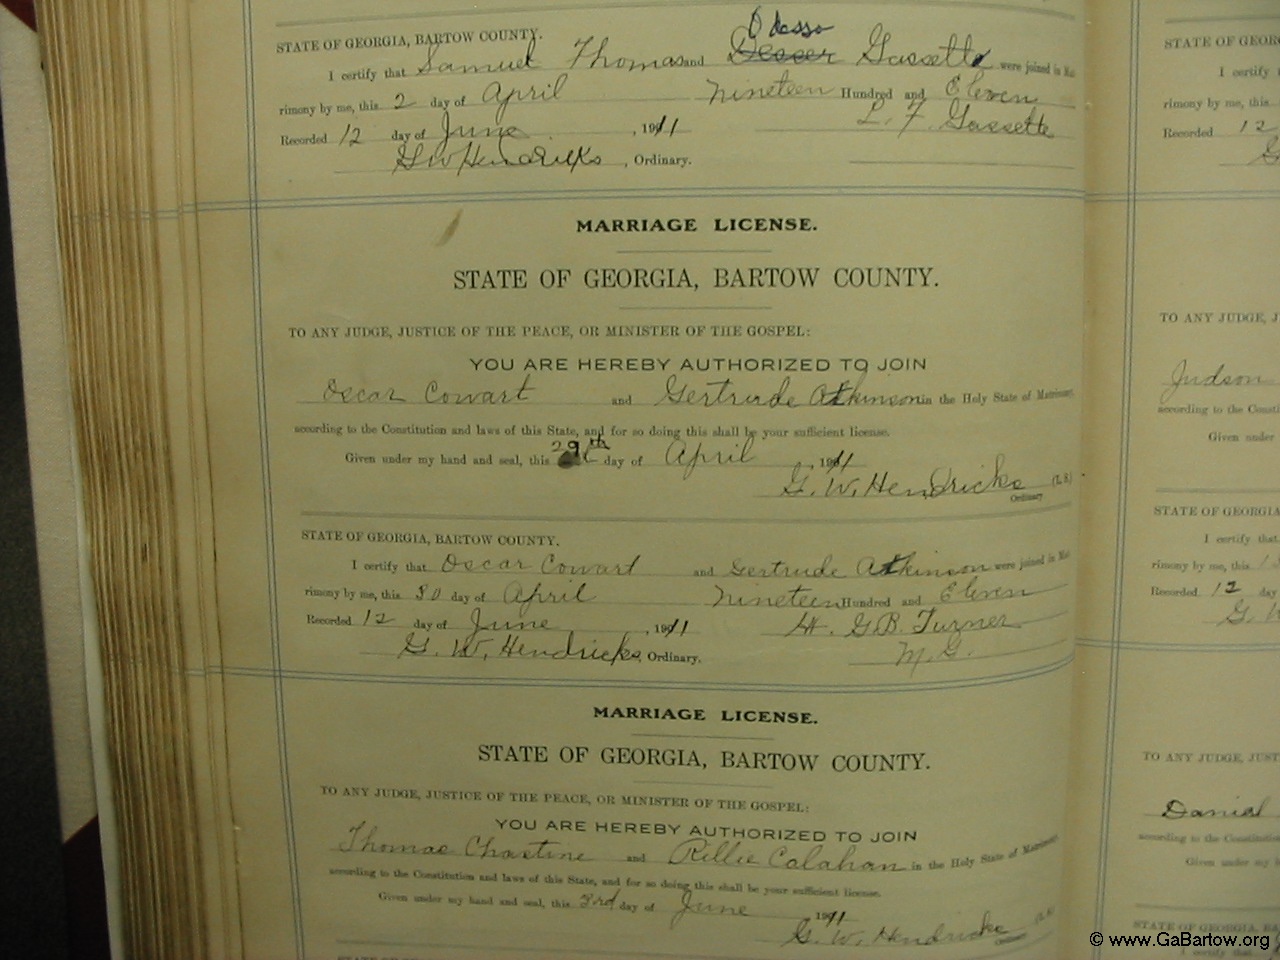 STATE OF GEORGIA, BARTOW COUNTY.
Odessa
I certify that Samuel Thomas and Gassett were joined in Mat-
rimony by me, this 2 day of April Nineteen Hundred and Eleven
Recorded 12 day of June, 1911 L. F. Gassette
G W Hendricks, Ordinary.
MARRIAGE LICENSE.
STATE OF GEORGIA, BARTOW COUNTY.
TO ANY JUDGE, JUSTICE OF THE PEACE, OR MINISTER OF THE GOSPEL:
YOU ARE HEREBY AUTHORIZED TO JOIN
Oscar Cowart and Gertrude Atkinson in the Holy State of Matrimony,
according to the Constitution and laws of this State, and for so doing this shall be your sufficient license.
Given under my hand and seal, this 29th day of April, 1911
G. W. Hendricks (L. S.)
Ordinary
STATE OF GEORGIA, BARTOW COUNTY.
I certify that Oscar Cowart and Gertrude Atkinson were joined in Mat-
rimony by me, this 30 day of April Nineteen Hundred and Eleven
Recorded 12 day of June, 1911 G.B. Turner
G. W. Hendricks, Ordinary. M.G.
MARRIAGE LICENSE.
STATE OF GEORGIA, BARTOW COUNTY.
TO ANY JUDGE, JUSTICE OF THE PEACE, OR MINISTER OF THE GOSPEL:
YOU ARE HEREBY AUTHORIZED TO JOIN
Thomas Chastine and Rillie Calahan in the Holy State of Matrimony,
according to the Constitution and laws of this State, and for so doing this shall be your sufficient license.
Given under my hand and seal, this 3rd day of June, 1911
G. W. Hendricks (L. S.)
Ordinary
STATE OF GEORGIA, BARTOW COUNTY.
STATE OF GEORG
I certify th
rimony by me, this
Recorded 12
G
TO ANY JUDGE, J
Judson
according to the Consti
Given under
STATE OF GEORGIA
I certify that
rimony by me, this
Recorded 12 day
G. W
TO ANY JUDGE, JUST
Daniel
according to the Constitution
Given under my h
STATE OF GEORGIA, BA
I certify that
© www.GaBartow.org